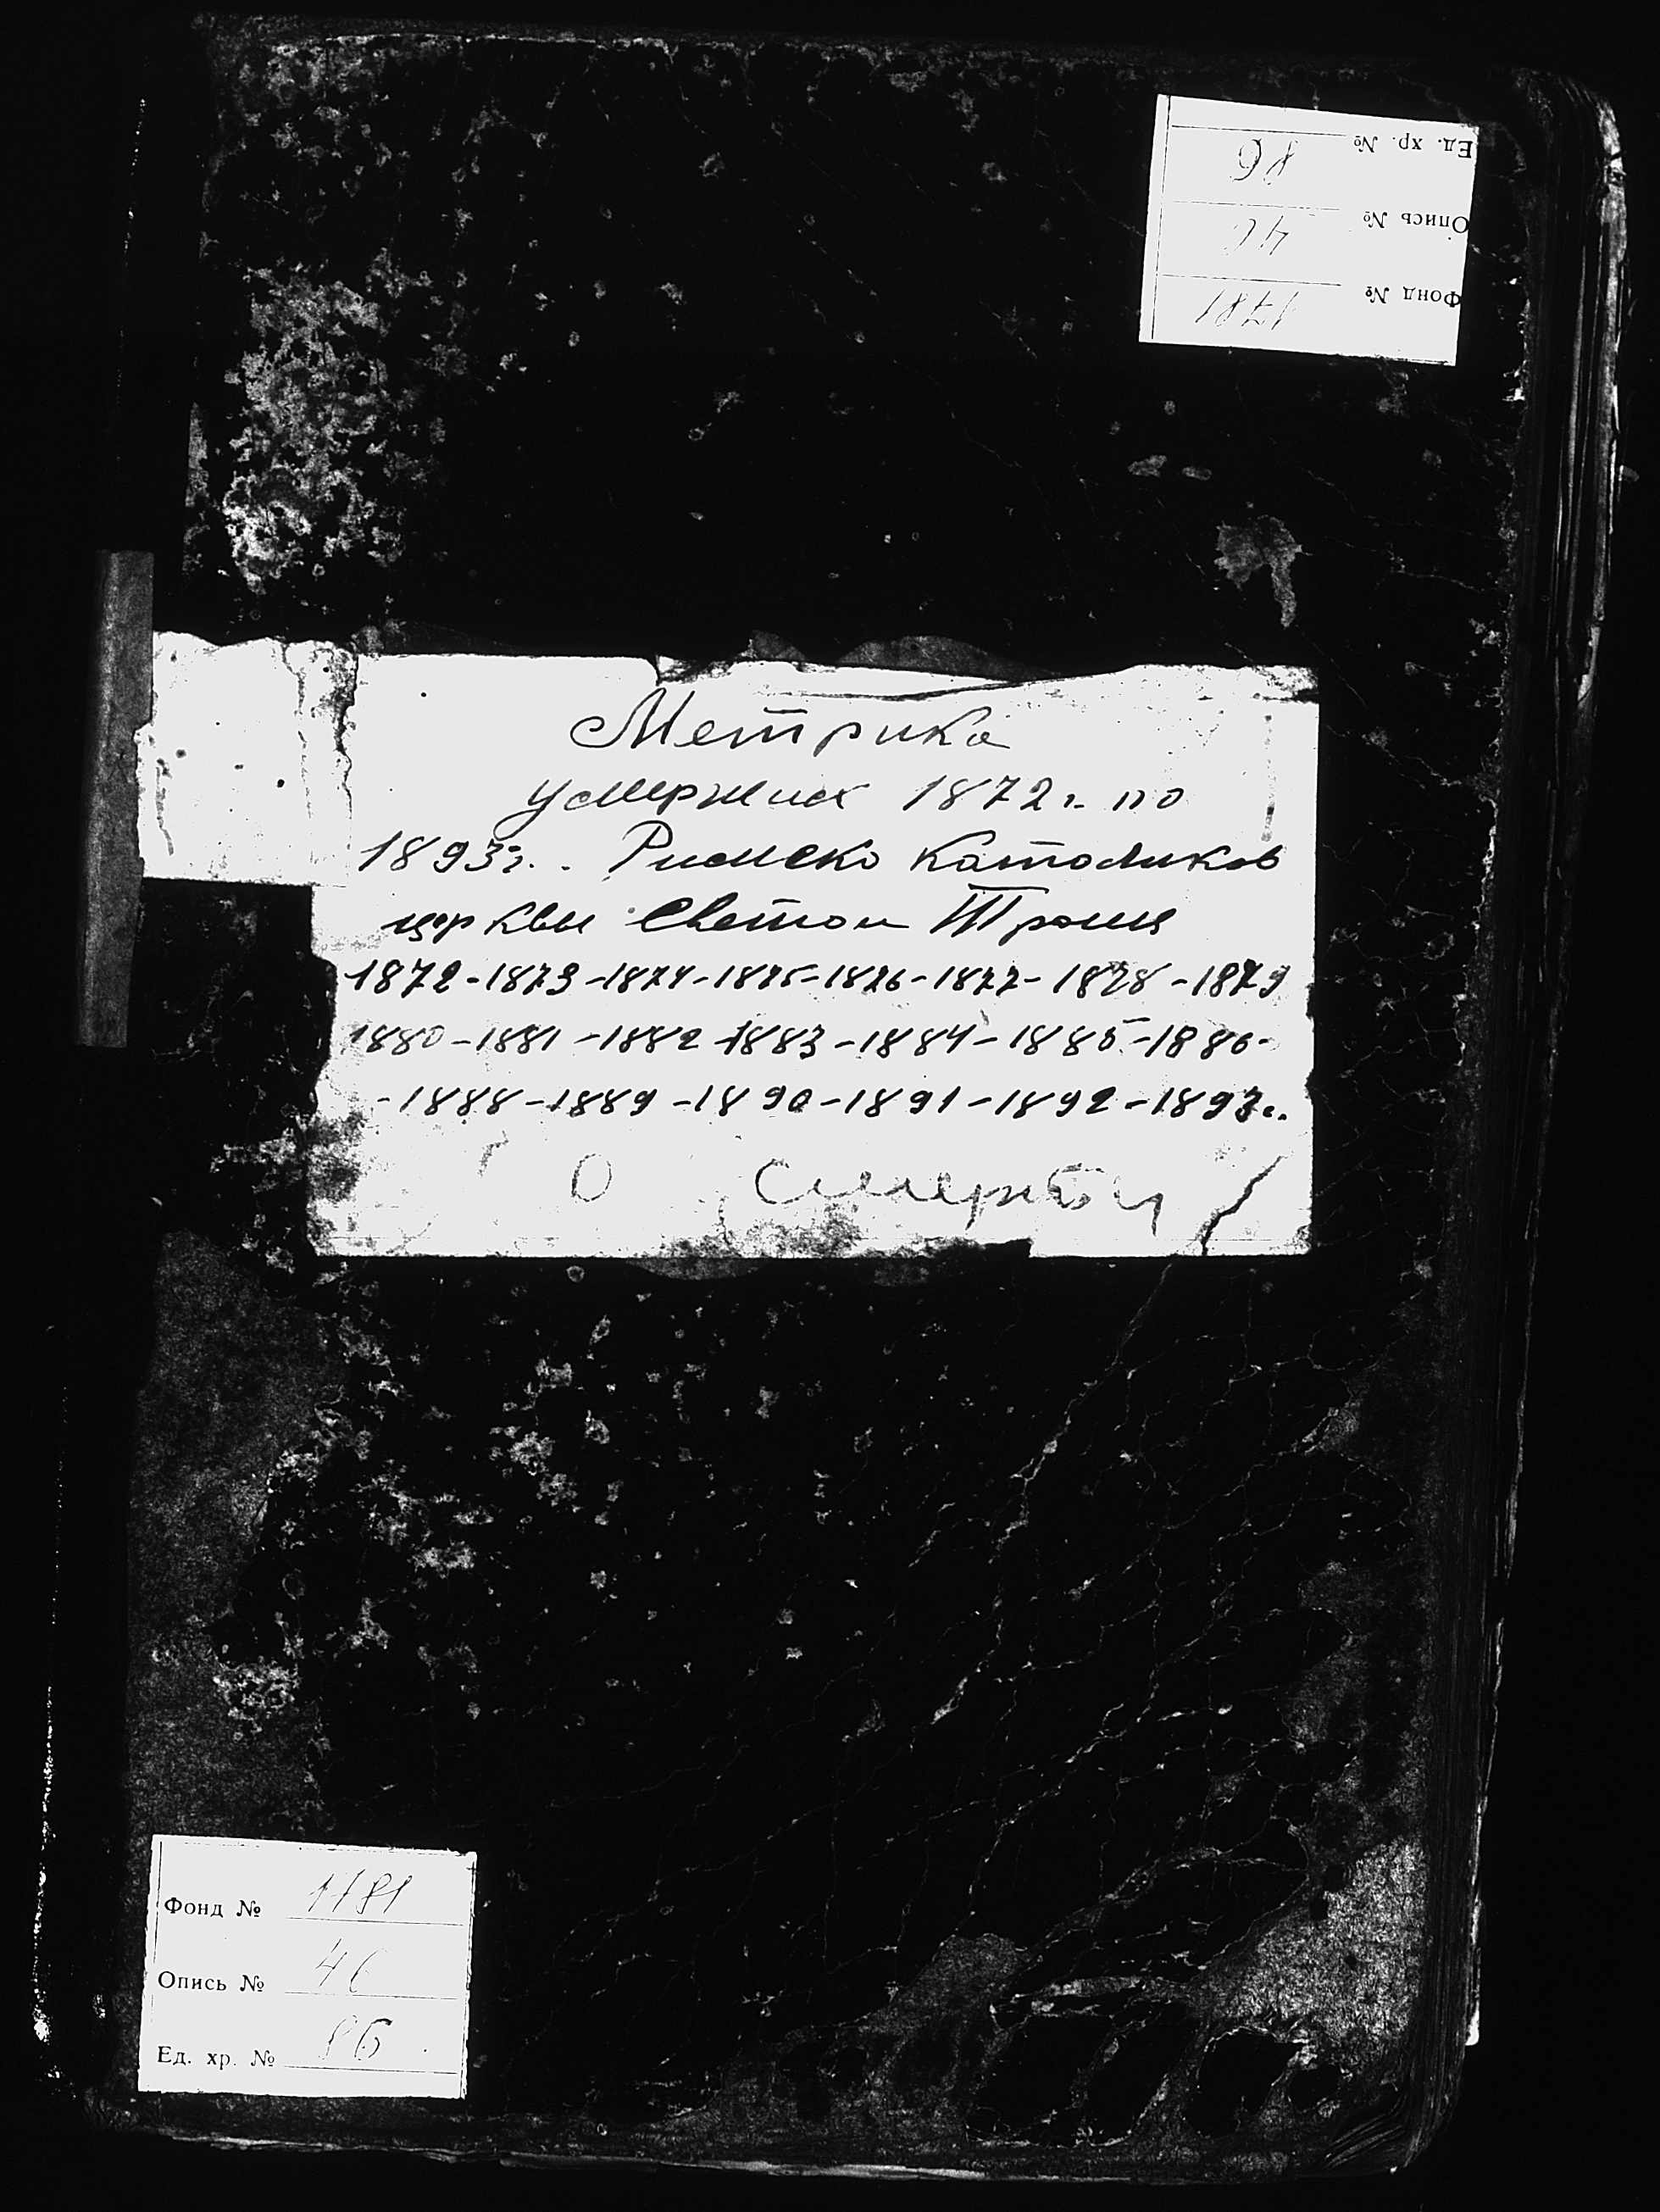 Ед. хр. № 86
Опись № 46
Фонд № 1781
Метрика
умерших 1872 г. по
1893 г. Римско Католиков
церквы Светои Троици
1872-1873-1874-1875-1876-1877-1878-1879
1880-1881-1882-1883-1884-1885-1886-
-1888-1889-1890-1891-1892-1893 г.
О Смерти
Фонд № 1781
Опись № 46
Ед. хр. № 86